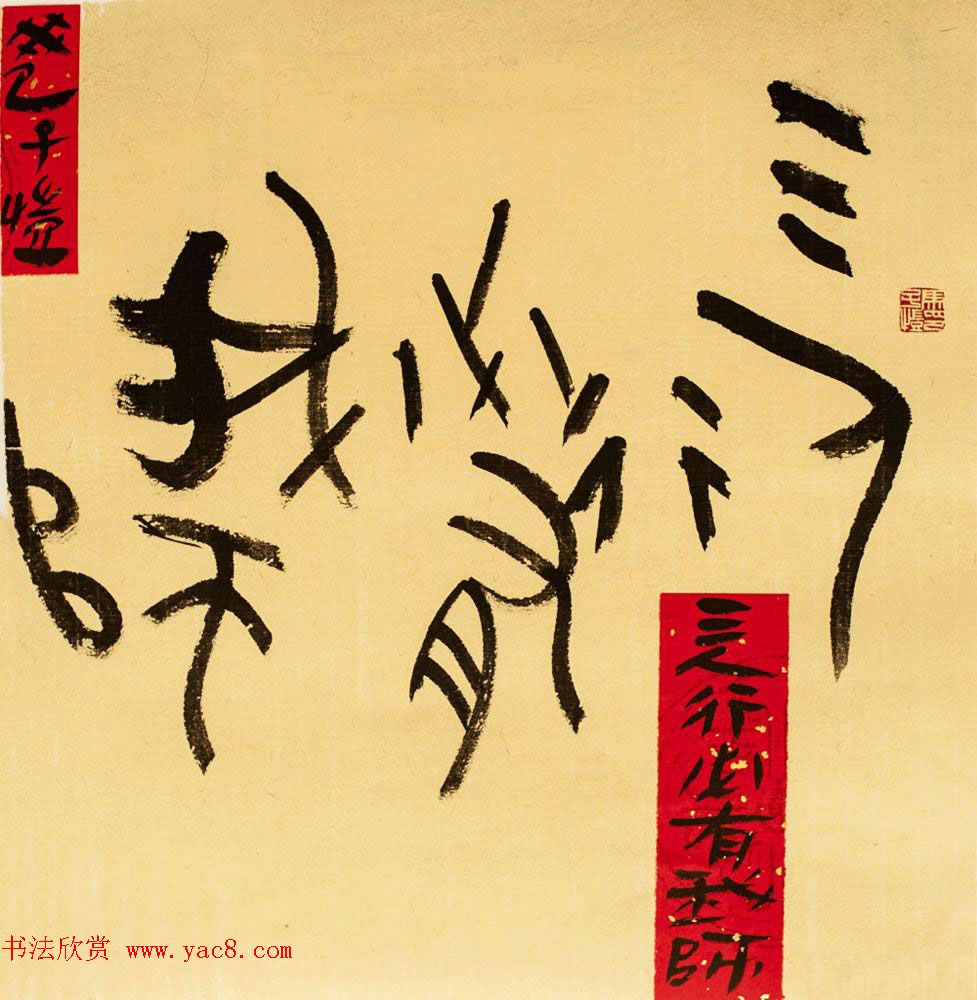 三人行
必有
我師
三人行必有我師
癸巳子愷
书法欣赏 www.yac8.com